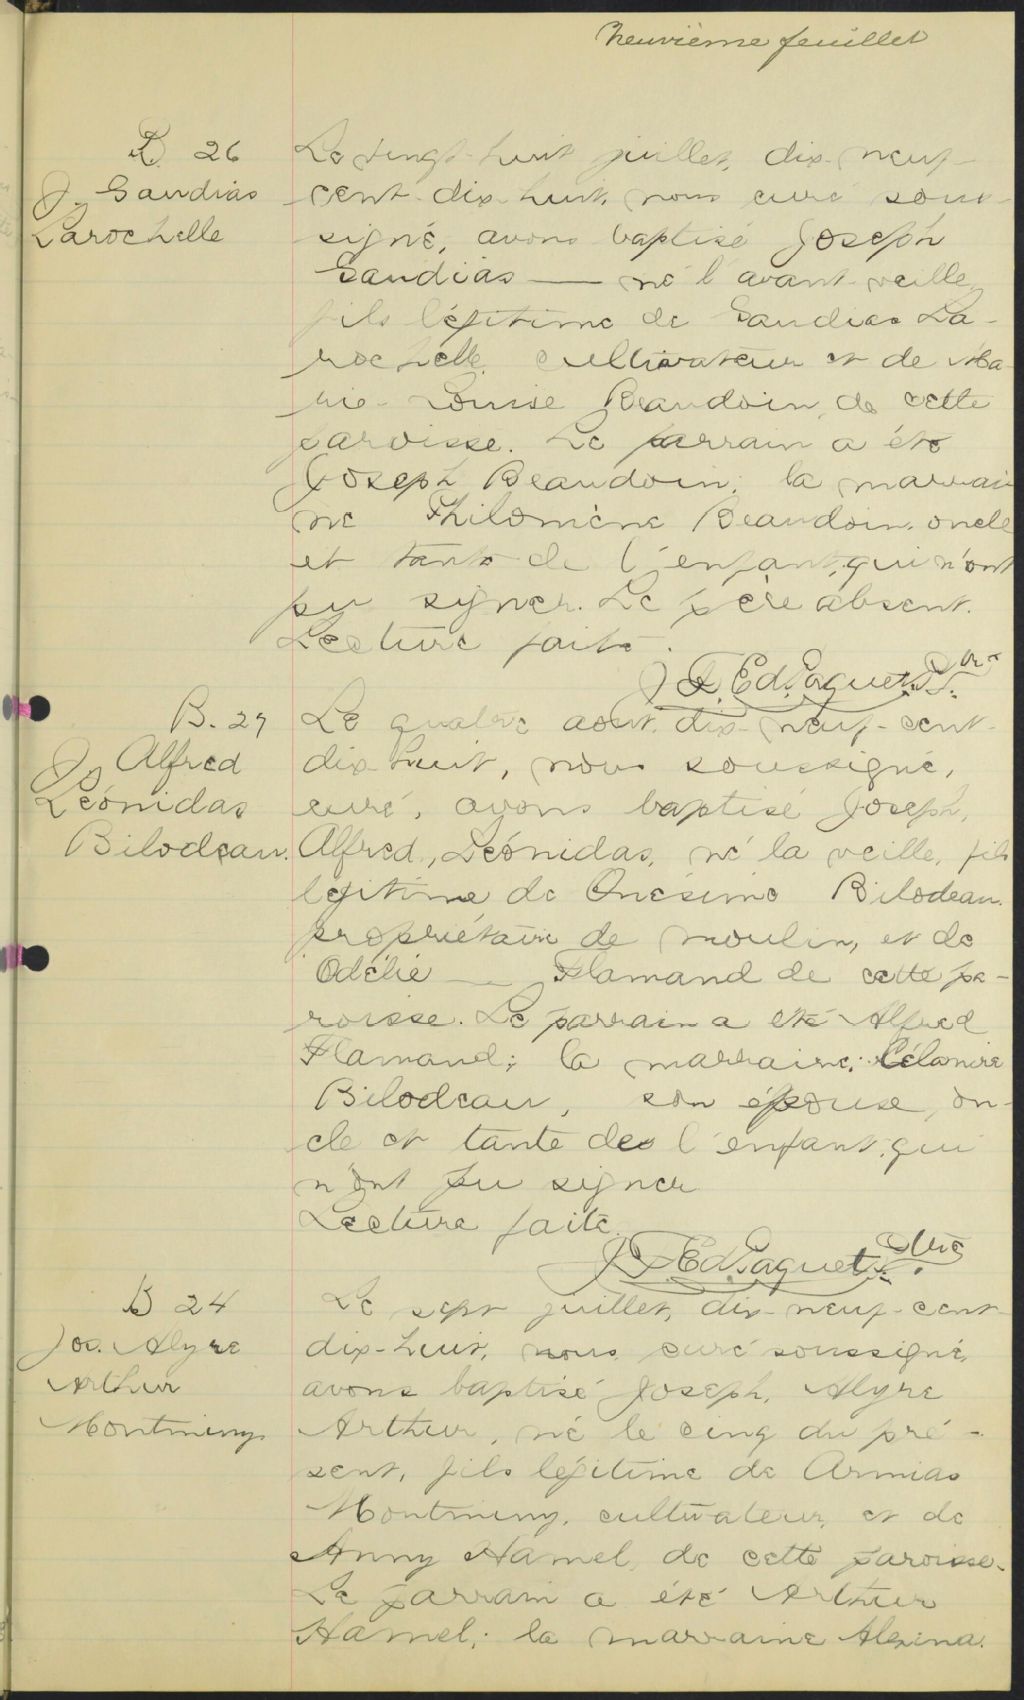 Neuvième feuillet
B. 26
J. Gaudias
Larochelle
Le vingt-huit juillet, dix-neuf-
cent-dix-huit, nous curé sous-
signé, avons baptisé Joseph
Gaudias — né l'avant-veille,
fils légitime de Gaudias La-
rochelle, cultivateur et de Ma-
rie-Louise Beaudoin, de cette
paroisse. Le parrain a été
Joseph Beaudoin; la marrai-
ne Philomène Beaudoin, oncle
et tante de l'enfant, qui n'ont
pu signer. Le père absent.
Lecture faite.
J. Ed. Paquet, Ptre
B. 27
Jos Alfred
Léonidas
Bilodeau.
Le quatre août, dix-neuf-cent-
dix-huit, nous soussigné,
curé, avons baptisé Joseph,
Alfred, Léonidas, né la veille, fils
légitime de Onésime Bilodeau
propriétaire de moulin, et de
Odélie — Flamand de cette pa-
roisse. Le parrain a été Alfred
Flamand; la marraine;
Bilodeau, son épouse, on-
cle et tante des l'enfant, qui
n'ont pu signer
Lecture faite.
J. Ed. Paquet, Ptre
B 24
Jos. Alyre
Arthur
Montminy
Le sept juillet, dix-neuf-cent
dix-huit, nous curé soussigné,
avons baptisé Joseph, Alyre
Arthur, né le cinq du pré-
sent, fils légitime de Armias
Montminy, cultivateur, et de
Anny Hamel, de cette paroisse.
Le parrain a été Arthur
Hamel; la marraine Alexina